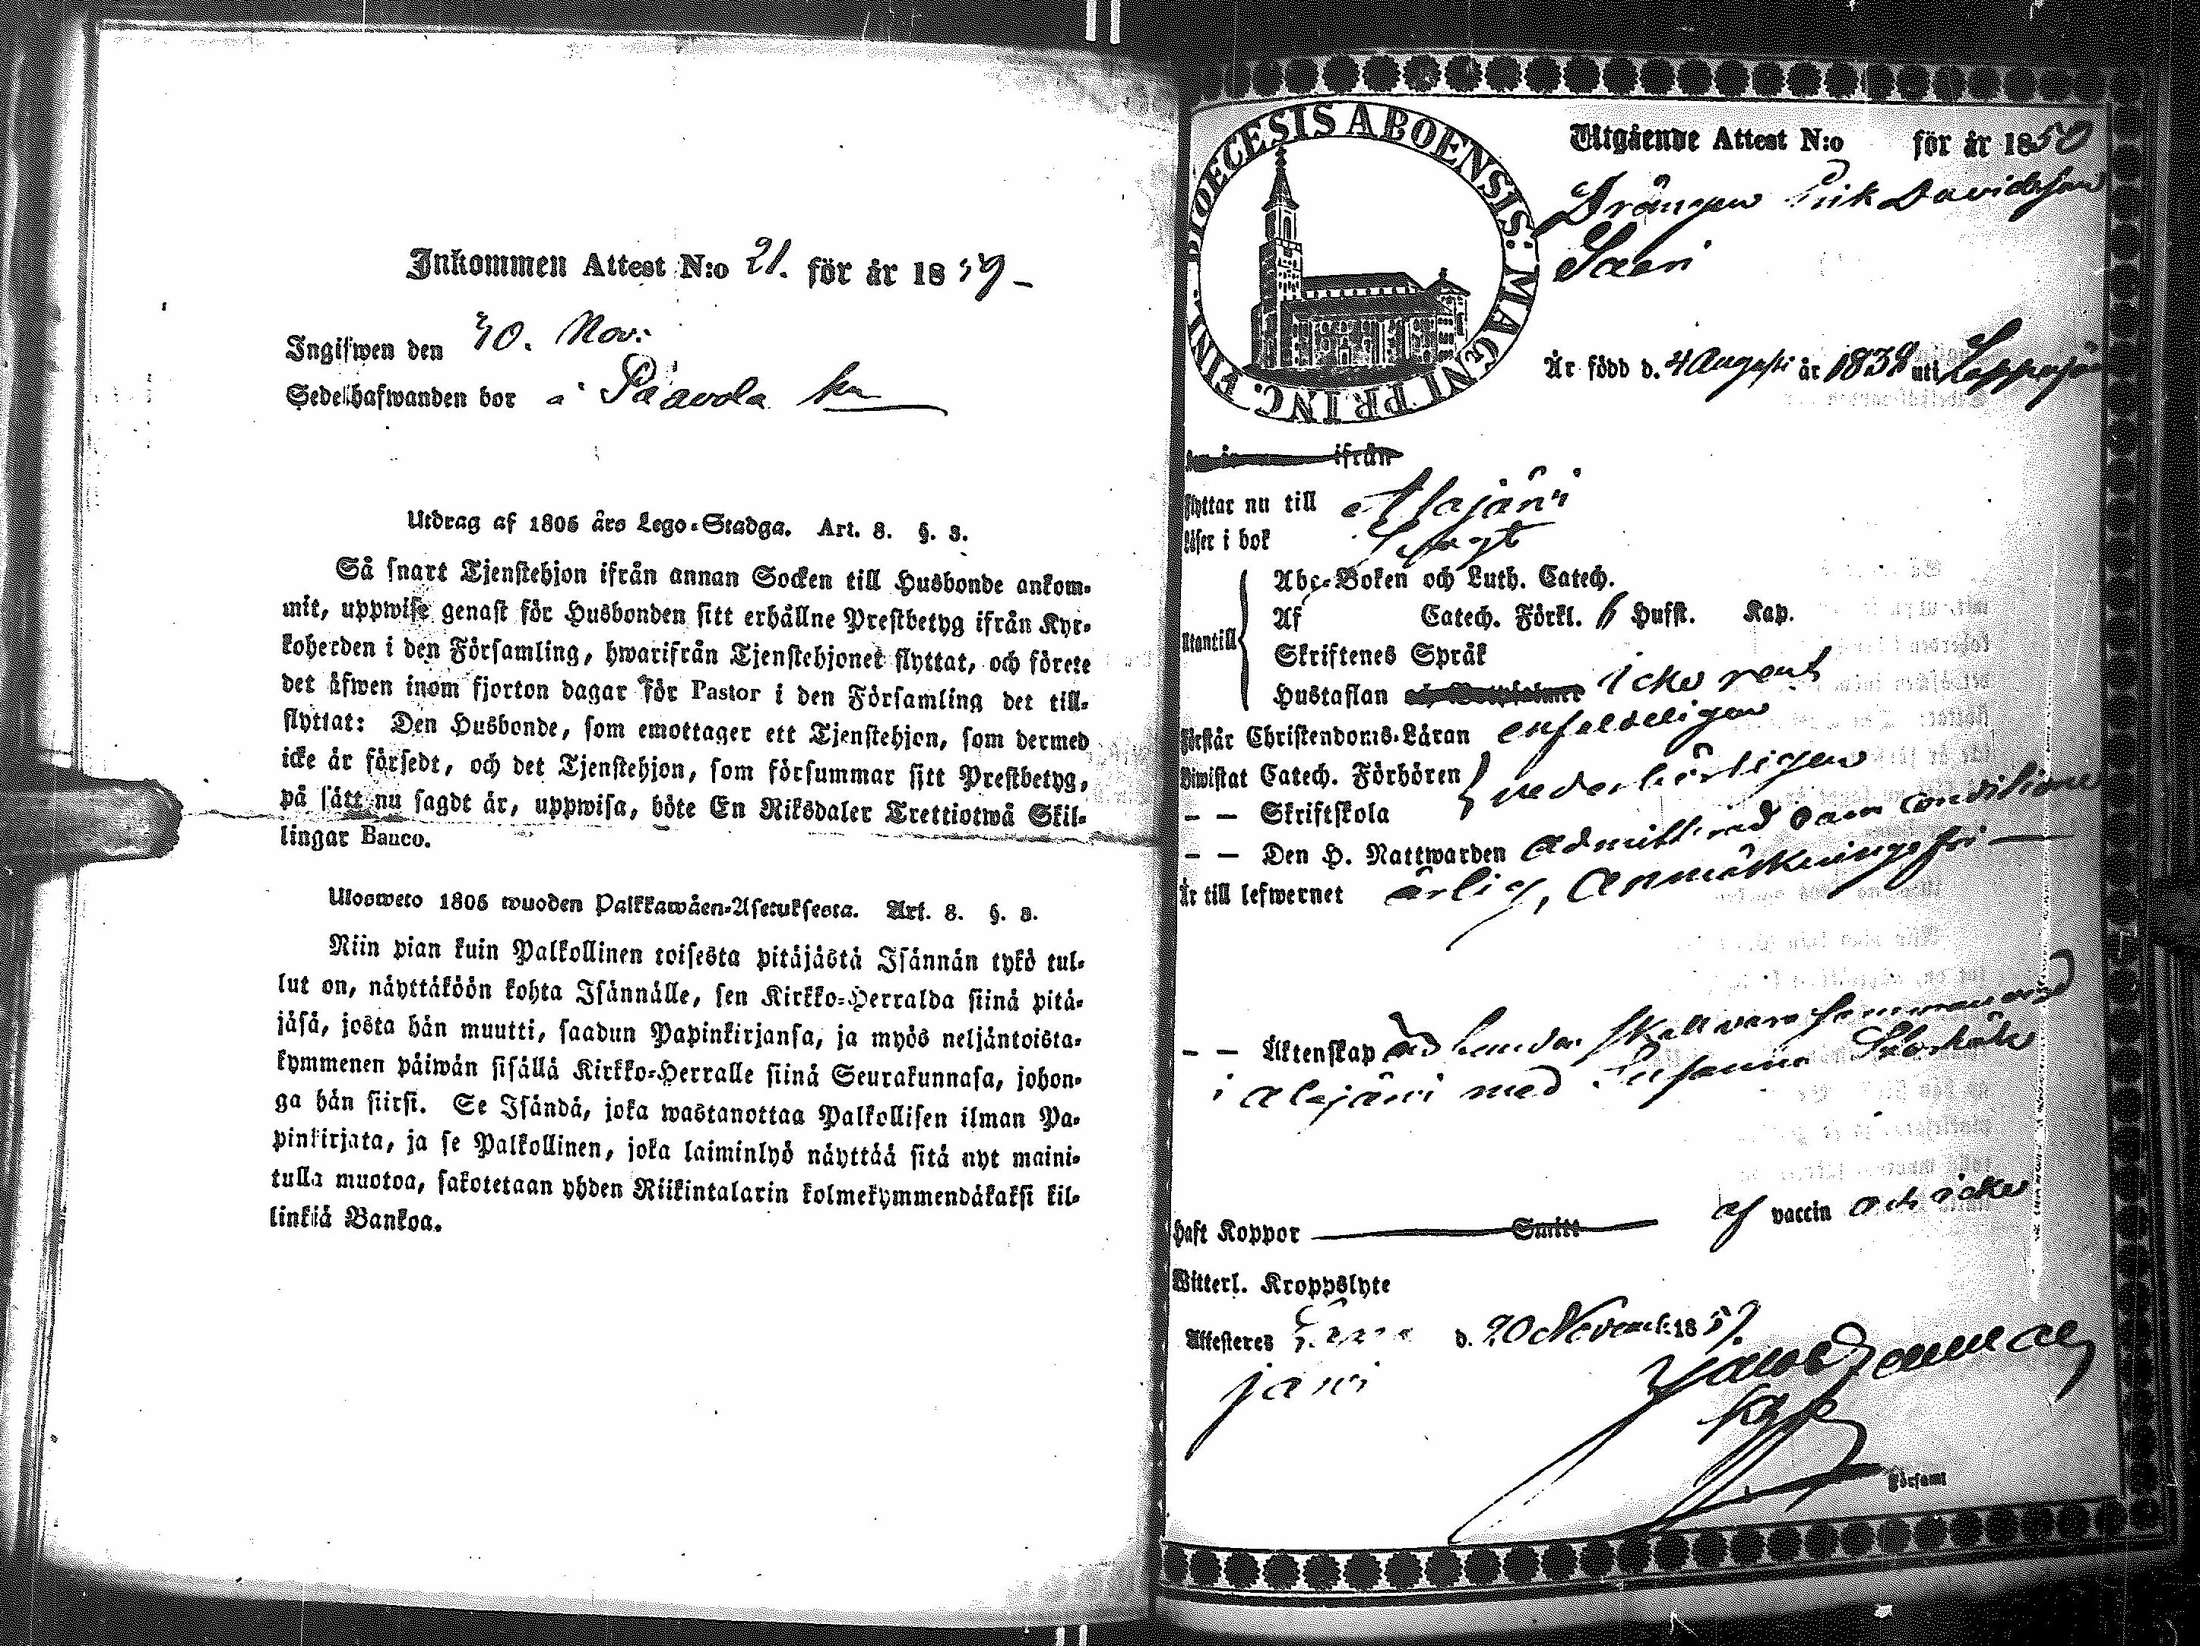 Inkommen Attest N:o 21. för år 1859
Ingifwen den 30. Nov:
Sedelhafwanden bor i Påavola
Utdrag af 1805 års Lego-Stadga. Art. 8. §. 3.
Så snart Tjenstehjon ifrån annan Socken till Husbonde ankom-
mit, uppwise genast för Husbonden sitt erhållne Prestbetyg ifrån Kyr-
koherden i den Församling, hwarifrån Tjenstehjonet flyttat, och förete
det äfwen inom fjorton dagar för Pastor i den Församling det till-
flyttat: Den Husbonde, som emottager ett Tjenstehjon, som dermed
icke är försedt, och det Tjenstehjon, som försummar sitt Prestbetyg,
på sätt nu sagdt är, uppwisa, böte En Riksdaler Trettiotwå Skil-
lingar Banco.
Ulosweto 1805 wuoden Palkkawäen-Asetuksesta. Art. 8. §. 3.
Niin pian kuin Palkollinen toisesta pitäjästä Isännän tykö tul-
lut on, näyttäköön kohta Isännälle, sen Kirkko-Herralda siinä pitä-
jäsä, josta hän muutti, saadun Papinkirjansa, ja myös neljäntoista-
kymmenen päiwän sisällä Kirkko-Herralle siinä Seurakunnasa, johon-
ga hän siirsi. Se Isändä, joka wastanottaa Palkollisen ilman Pa-
pinkirjata, ja se Palkollinen, joka laiminlyö näyttää sitä nyt maini-
tulla muotoa, sakotetaan yhden Riikintalarin kolmekymmendäkaksi kil-
linkiä Bankoa.
DIOECESIS ABOENSIS: MAGNI PRINC. FINL.
Utgående Attest N:o för år 1850
Drängen Erik Davidsson
Saari
Är född d. 4 Augusti år 1838 uti Lappajär
ifrån
flyttar nu till Alajärvi
läser i bok
Utantill
Abc-Boken och Luth. Catech.
Af Catech. Förkl. 6 Husst. Kap.
Skriftenes Språk
Hustaflan icke rent
Förstår Christendoms-Läran enfaldeligen
Biwistat Catech. Förhören vederbörligen
— — Skriftskola
— — Den H. Nattwarden admitterad
Är till lefwernet ärlig, anmärkningsfri —
— — Äktenskap skall vara
i Alajärvi med Susanna
Haft Koppor Smitt af vaccin och icke
Witterl. Kroppslyte
Attesteres d. 20 Novemb: 1859.
järvi
Församl